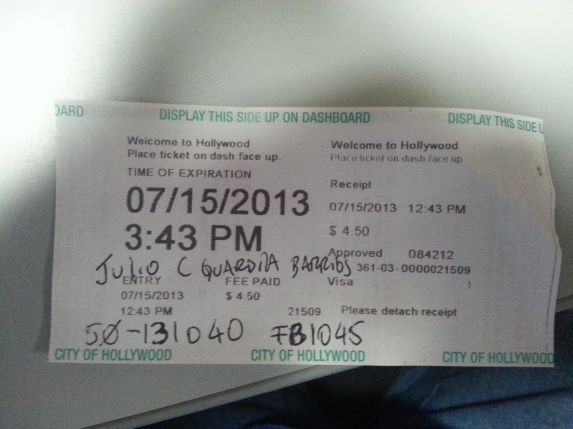 DARD DISPLAY THIS SIDE UP ON DASHBOARD DISPLAY THIS SIDE U
Welcome to Hollywood
Place ticket on dash face up.
TIME OF EXPIRATION
07/15/2013
3:43 PM
Welcome to Hollywood
Place ticket on dash face up
Receipt
07/15/2013 12:43 PM
$ 4.50
Approved 084212
JULIO C GUARDIA BARRIOS
361-03-0000021509
Visa
ENTRY FEE PAID
07/15/2013 $ 4 50
12:43 PM 21509 Please detach receipt
50-131040 FB1045
CITY OF HOLLYWOOD CITY OF HOLLYWOOD CITY OF HOLLYWOOD